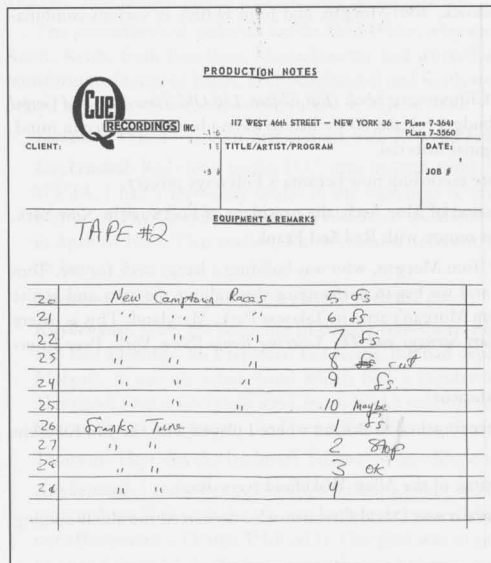 PRODUCTION NOTES
Cue
RECORDINGS INC.
117 WEST 46th STREET – NEW YORK 36 – PLaza 7-3641
PLaza 7-3560
CLIENT:
TITLE/ARTIST/PROGRAM
DATE:
JOB #
EQUIPMENT & REMARKS
TAPE #2
20 New Camptown Races 5 fs
21 " " " 6 fs
22 " " " 7 fs
23 " " " 8 cut
24 " " " 9 fs
25 " " " 10 Maybe
26 Franks Tune 1 fs
27 " " 2 Stop
28 " " 3 OK
" " 4